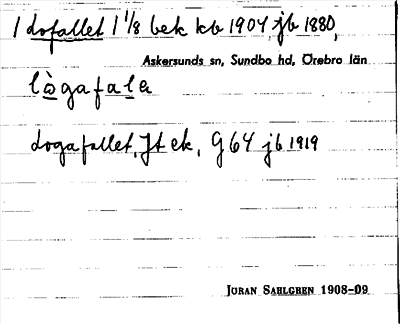 1 dofallet 1 1/8 bek kb 1904, jb 1880,
Askersunds sn, Sundbo hd, Örebro län
lògafala
Logafallet, Jt ek, G64 jb 1919
JÖRAN SAHLGREN 1908-09